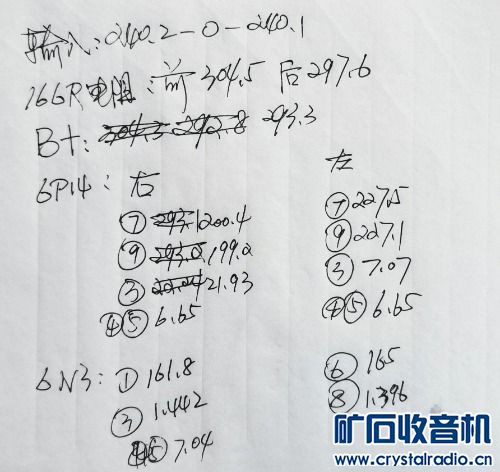 输入：240.2-0-240.1
166R电阻：前304.5 后297.6
B+: 304.3 292.8 293.3
6P14: 右 左
⑦ 293.1 200.4 ⑦ 227.5
⑨ 293.0 199.0 ⑨ 227.1
③ 21.93 ③ 7.07
④⑤ 6.65 ④⑤ 6.65
6N3: ① 161.8 ⑥ 165
③ 1.442 ⑧ 1.396
④⑤ 7.04
矿石收音机
www.crystalradio.cn